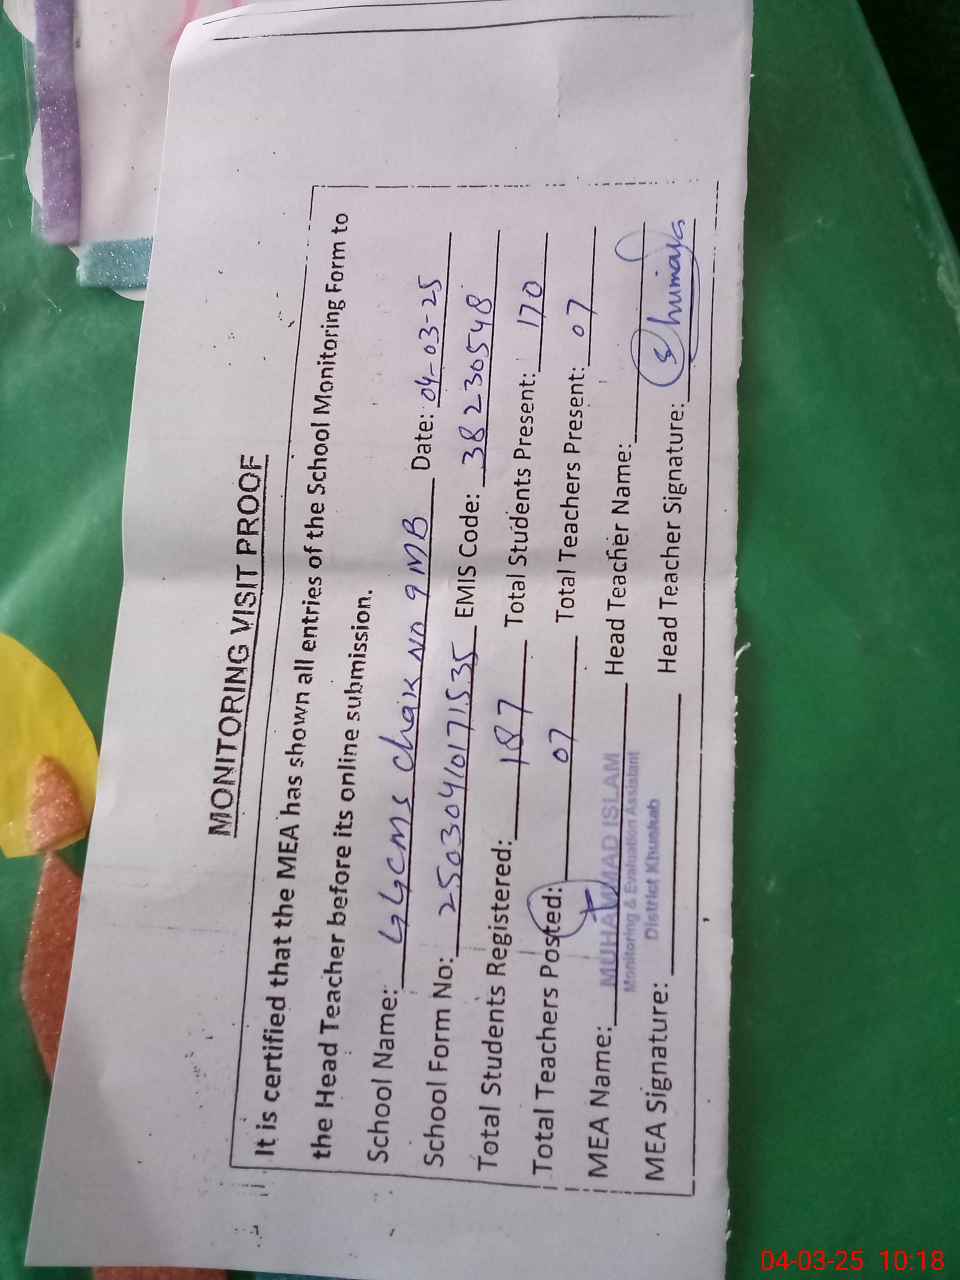 MONITORING VISIT PROOF
It is certified that the MEA has shown all entries of the School Monitoring Form to
the Head Teacher before its online submission.
School Name: GGCMS Chak No 9 MB Date: 04-03-25
School Form No: 25030410171535 EMIS Code: 38230548
Total Students Registered: 187 Total Students Present: 170
Total Teachers Posted: 07 Total Teachers Present: 07
MEA Name: MUHAMMAD ISLAM Head Teacher Name:
Monitoring & Evaluation Assistant
District Khushab
MEA Signature: Head Teacher Signature: Shumaya
04-03-25 10:18